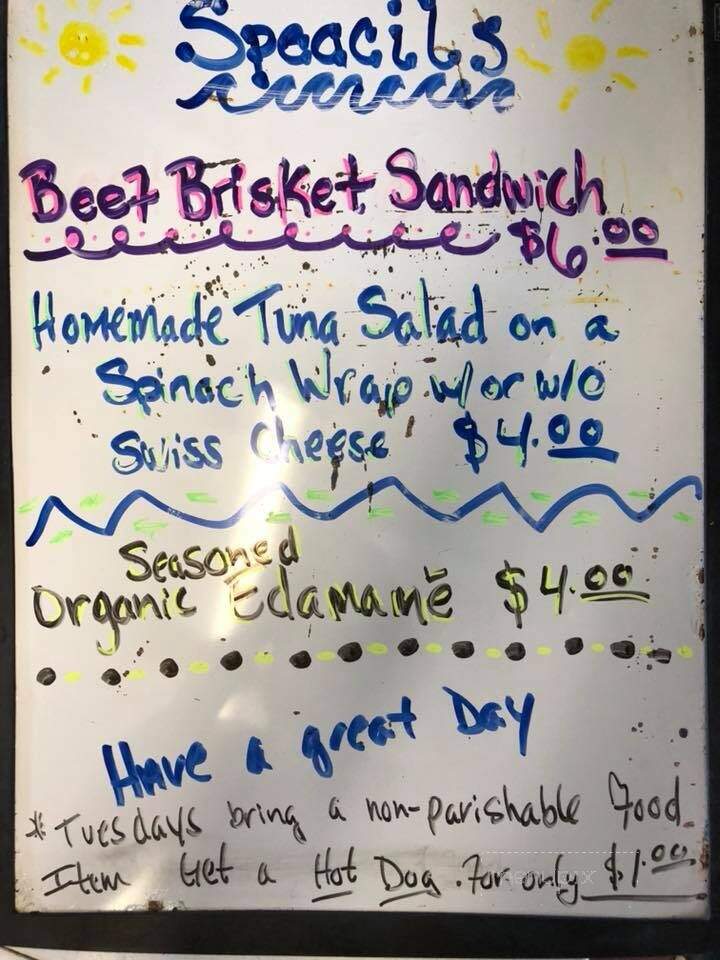 Spaacils
Beef Brisket Sandwich
$6.00
Homemade Tuna Salad on a
Spinach Wrap w/ or w/o
Swiss Cheese $4.00
Seasoned
Organic Edamamě $4.00
Have a great Day
* Tuesdays bring a non-parishable Food
Item Get a Hot Dog. For only $1.00